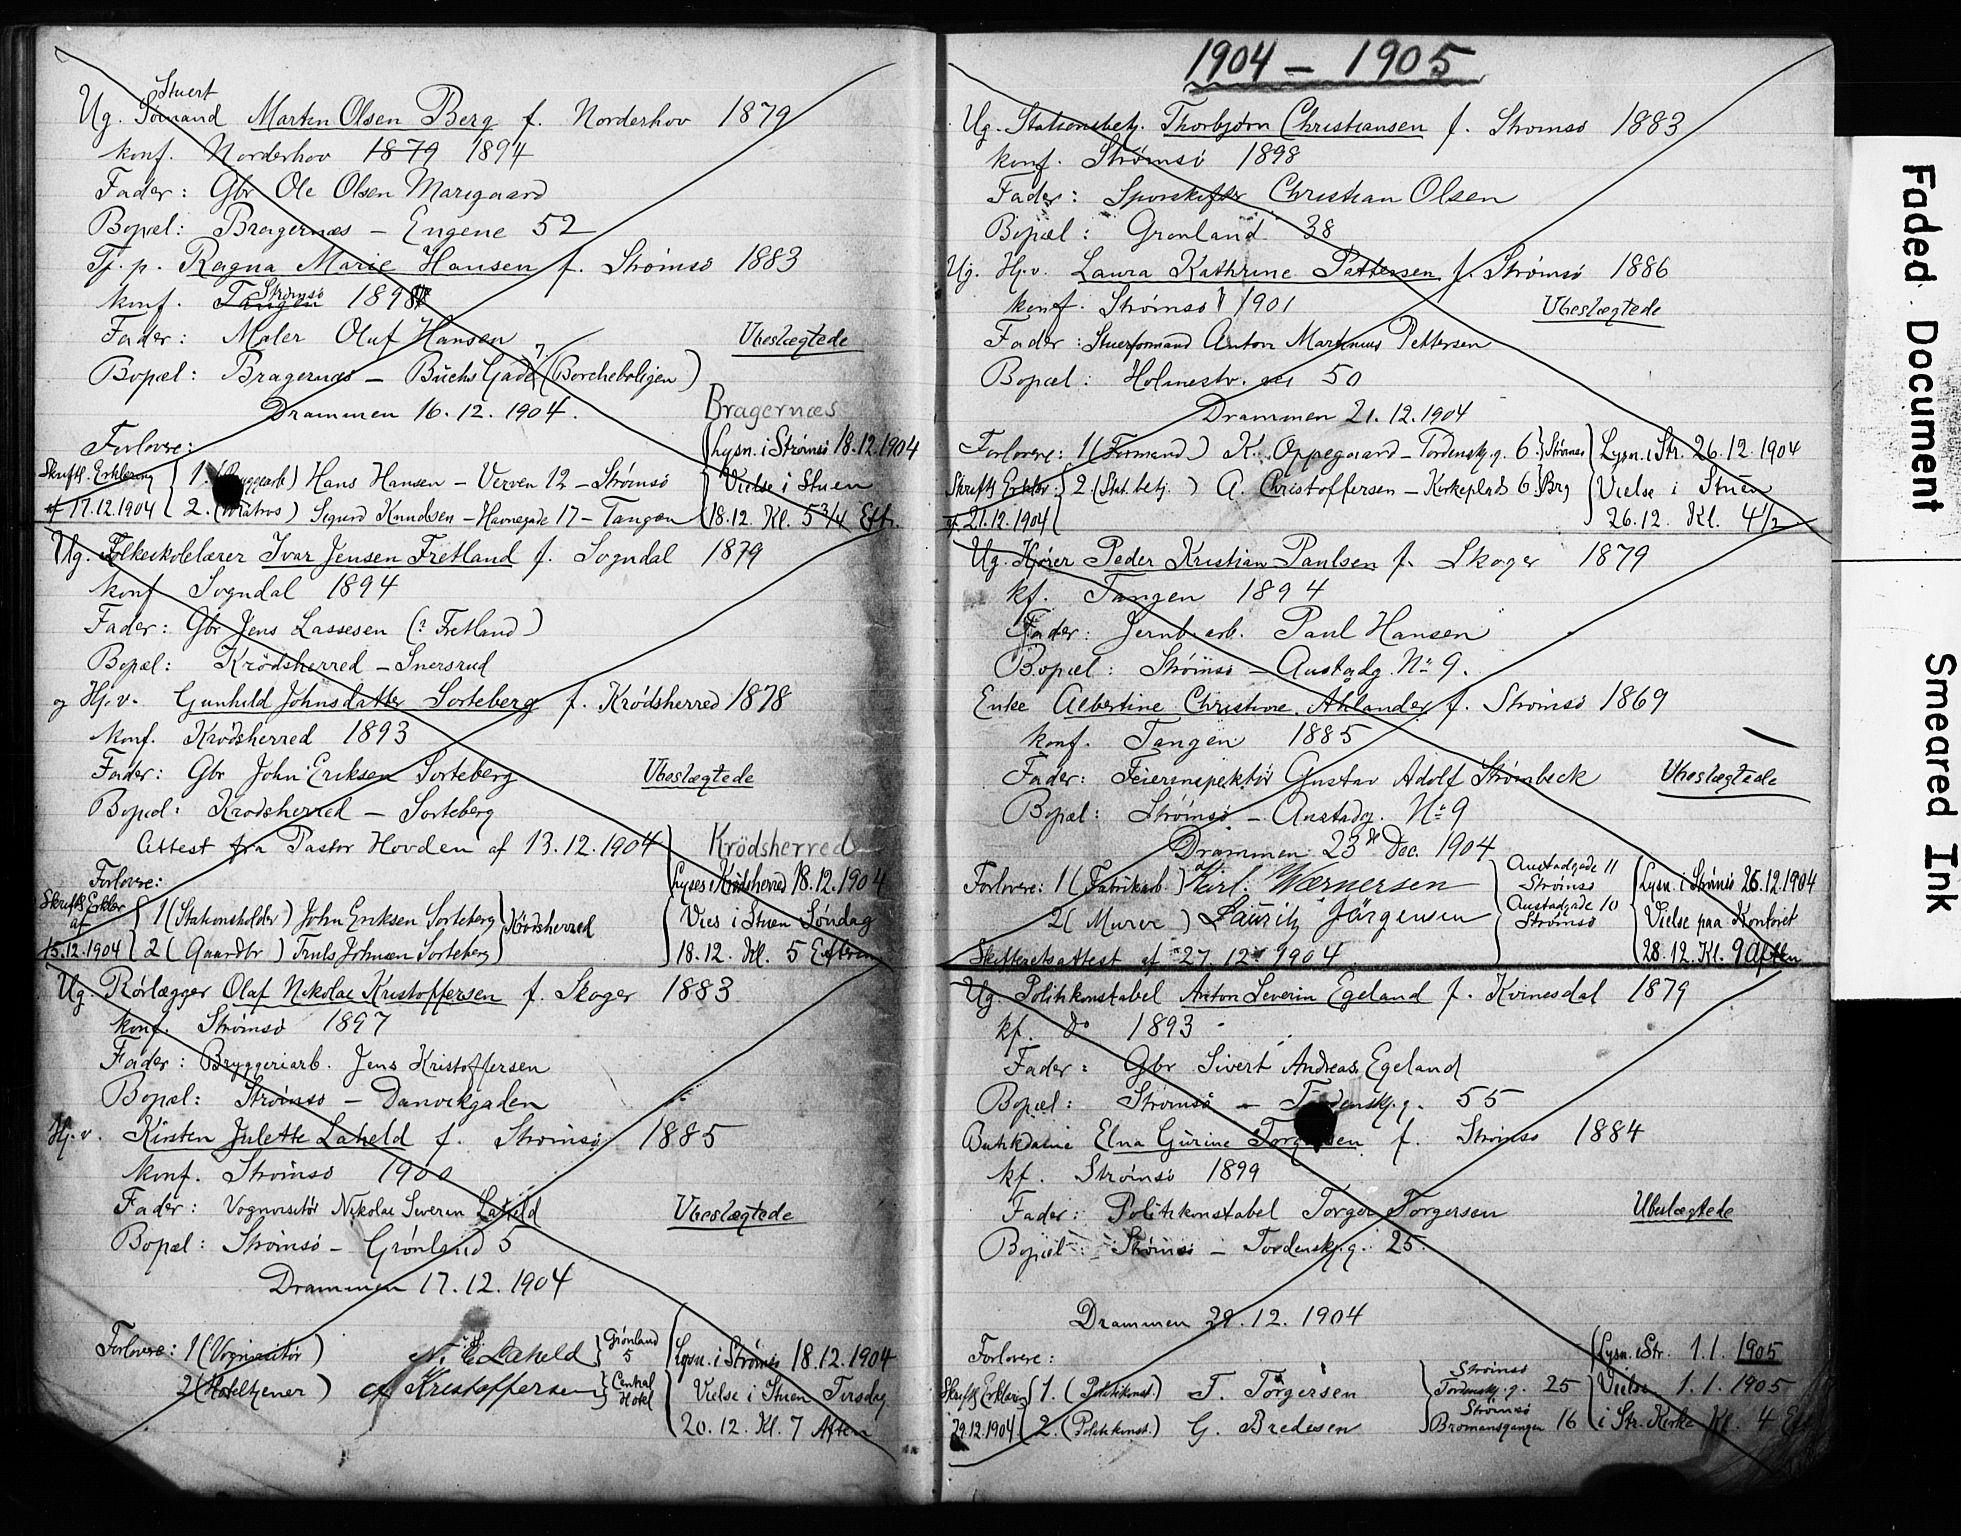 Stuert
Ug. Sømand Marten Olsen Berg f. Norderhov 1879
konf. Norderhov 1879 1894
Fader: Gbr Ole Olsen Maregaard
Bopæl: Bragernæs – Engene 52
Tj. p. Ragna Marie Hansen f. Strømsø 1883
konf. Tangen Strømsø 1898
Fader: Maler Oluf Hansen
Ubeslægtede
Bopæl: Bragernæs – Buchs Gade 7 (Borcheboligen)
Drammen 16.12.1904.
Bragernæs
Forlovere:
Lysn. i Strømsø 18.12.1904
Skriftl. Erklæring 1. (Bryggearb) Hans Hansen – Verven 12 – Strømsø
Vielse i Stuen
af 17.12.1904 2. (Matros) Sigurd Knudsen – Havnegade 17 – Tangen
18.12. Kl. 5 3/4 Eft.
Ug. Folkeskolelærer Ivar Jensen Fretland f. Sogndal 1879
konf Sogndal 1894
Fader: Gbr Jens Lassesen (? Fretland)
Bopæl: Krødsherred – Snersrud
og Hj.v. Gunhild Johnsdatter Sorteberg f. Krødsherred 1878
konf. Krødsherred 1893
Fader: Gbr John Eriksen Sorteberg
Ubeslægtede
Bopæl: Krødsherred – Sorteberg
Attest fra Pastor Hovden af 13.12.1904
Krödsherred
Forlovere:
Lyses i Krødsherred 18.12.1904
Skriftl. Erklær af 15.12.1904
1 (Stationsholder) John Eriksen Sorteberg
2 (Gaardbr) Truls Johnsen Sorteberg
Krødsherred
Vies i Stuen Søndag
18.12. Kl. 5 Efterm
Ug. Rørlægger Olaf Nikolai Kristoffersen f. Skoger 1883
konf. Strømsø 1897
Fader: Bryggeriarb. Jens Kristoffersen
Bopæl: Strømsø – Danvikgaden
Hj.v. Kirsten Julette Laheld f. Strømsø 1885
konf. Strømsø 1900
Fader: Vognvisitør Nikolai Severin Laheld
Ubeslægtede
Bopæl: Strømsø – Grønland 5
Drammen 17.12.1904
Forlovere: 1 (Vognvisitør) N. Laheld Grønland 5
Lysn. i Strømsø 18.12.1904
2 (Hoteltjener) Kristoffersen Central Hotel
Vielse i Stuen Tirsdag
20.12. Kl. 7 Aften
1904 – 1905
Ug. Stationsbetj. Thorbjørn Christiansen f. Strømsø 1883
konf. Strømsø 1898
Fader: Sporskifter Christian Olsen
Bopæl: Grønland 38
Ug. Hj.v. Laura Kathrine Pettersen f. Strømsø 1886
konf. Strømsø 1901
Ubeslægtede
Fader: Stuerformand Anton Martinius Pettersen
Bopæl: Holmestr. 50
Drammen 21.12.1904
Forlovere: 1 (Formand) K. Oppegaard – Tordenskj.g. 6. Strømsø
Lysn. i Str. 26.12.1904
Skriftl. Erklær. 2 (Stat.betj.) A. Christoffersen – Kirkeplads 6. Brg
Vielse i Stuen
af 21.12.1904
26.12. Kl. 4 1/2
Ug. Kjører Peder Kristian Paulsen f. Skoger 1879
kf. Tangen 1894
Fader: Jernb.arb. Paul Hansen
Bopæl: Strømsø – Austadg. No 9.
Enke Albertine Christine Åhlander f. Strømsø 1869
konf. Tangen 1885
Fader: Feierinspektør Gustav Adolf Strømbeck
Ubeslægtede
Bopæl: Strømsø – Austadg. No 9
Drammen 23de Dec. 1904
Forlovere: 1 (Fabrikarb.) Karl. Wærnersen Austadgade 11 Strømsø
Lysn. i Strømsø 26.12.1904
2 (Murer) Lauritz Jörgensen Austadgade 10 Strømsø
Vielse paa Kontoret
Skifteretsattest af 27.12.1904
28.12. Kl. 9 Aften
Ug. Politikonstabel Anton Severin Egeland f. Kvinesdal 1879
kf. do 1893
Fader: Gbr Sivert Andreas Egeland
Bopæl: Strømsø – Tordenskj.g. 55
Butikdame Elna Gurine Torgersen f. Strømsø 1884
kf. Strømsø 1899
Fader: Politikonstabel Torger Torgersen
Ubeslægtede
Bopæl: Strømsø – Tordenskj.g. 25
Drammen 29.12.1904
Forlovere:
Lysn. i Str. 1.1. 1905
Skriftl. Erklæring 1. (Politikonst.) T. Torgersen Strømsø Tordenskj.g. 25
Vielse 1.1.1905
29.12.1904 2. (Politikonst.) G. Bredesen Strømsø Bromansgangen 16
i Str. Kirke Kl. 4 Eft
Faded Document
Smeared Ink